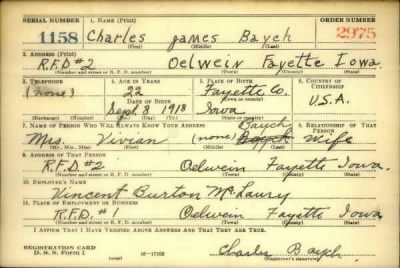 SERIAL NUMBER 1. NAME (Print) ORDER NUMBER
1158 Charles James Baych 2975
(First) (Middle) (Last)
2. ADDRESS (Print)
R.F.D #2 Oelwein Fayette Iowa.
(Number and street or R. F. D. number) (Town) (County) (State)
3. TELEPHONE 4. AGE IN YEARS 5. PLACE OF BIRTH 6. COUNTRY OF CITIZENSHIP
(none) 22 Fayette Co. U.S.A.
DATE OF BIRTH (Town or county)
Sept 3 1918 Iowa
(Exchange) (Number) (Mo.) (Day) (Yr.) (State or country)
7. NAME OF PERSON WHO WILL ALWAYS KNOW YOUR ADDRESS 8. RELATIONSHIP OF THAT PERSON
Baych
Mrs Vivian (none) Baych Wife
(Mr., Mrs., Miss) (First) (Middle) (Last)
9. ADDRESS OF THAT PERSON
R.F.D.#2. Oelwein Fayette Iowa.
(Number and street or R. F. D. number) (Town) (County) (State)
10. EMPLOYER'S NAME
Vincent Burton McLaury
11. PLACE OF EMPLOYMENT OR BUSINESS
R.F.D. #1 Oelwein Fayette Iowa
(Number and street or R. F. D. number) (Town) (County) (State)
I AFFIRM THAT I HAVE VERIFIED ABOVE ANSWERS AND THAT THEY ARE TRUE.
REGISTRATION CARD
D. S. S. Form 1 Charles Baych
(Registrant's signature)